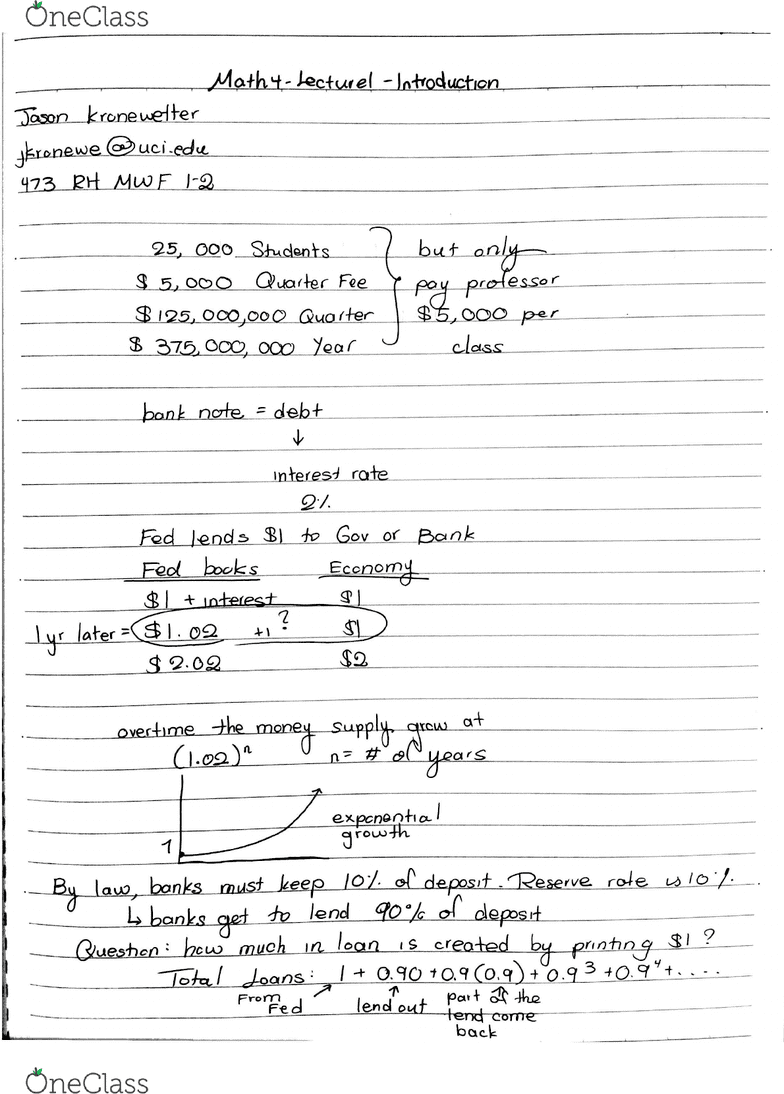 OneClass
Math 4 - Lecture 1 - Introduction
Jason Kronewetter
jkronewe@uci.edu
473 RH MWF 1-2
25,000 Students
$5,000 Quarter Fee
$125,000,000 Quarter
$375,000,000 Year
but only
pay professor
$5,000 per
class
bank note = debt
↓
interest rate
2%
Fed lends $1 to Gov or Bank
Fed books Economy
$1 + interest $1
1yr later = $1.02 +1 ? $1
$2.02 $2
overtime the money supply grow at
(1.02)ⁿ n = # of years
1
exponential
growth
By law, banks must keep 10% of deposit. Reserve rate is 10%.
↳ banks get to lend 90% of deposit
Question: how much in loan is created by printing $1?
Total Loans: 1 + 0.90 + 0.9(0.9) + 0.9³ + 0.9⁴ + ....
From Fed ↗ ↑ lend out ↑ part of the
lend come
back
OneClass